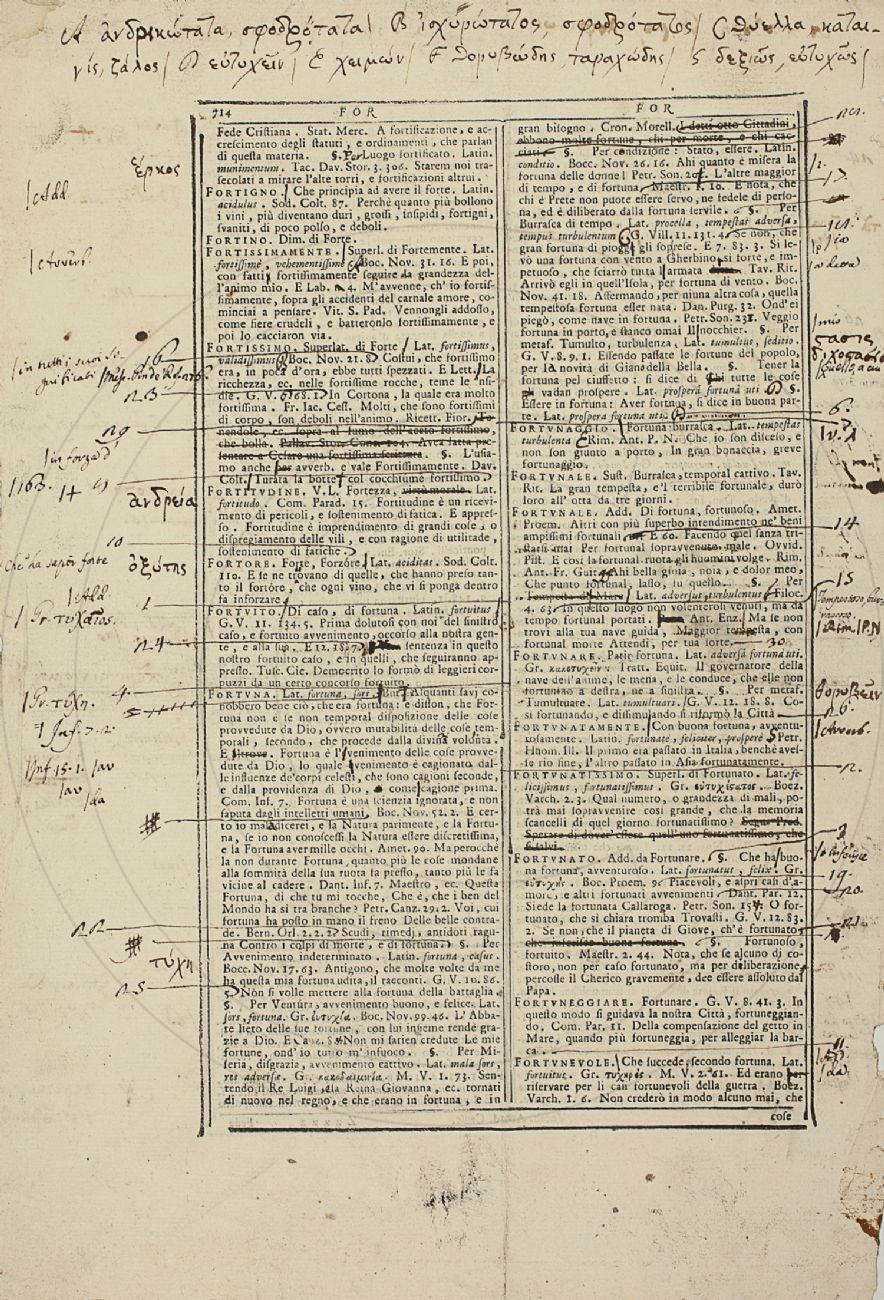 A ἀνδρικώτατα, σφοδρότατα/ B ἰσχυρώτατος, σφοδρότατος/ C θύελλα, καται-
γίς, ζάλος/ D εὐτυχεῖν/ E χειμών/ F θορυβώδης, ταραχώδης/ G δεξιῶς, εὐτυχῶς/
714 FOR FOR
Fede Cristiana. Stat. Merc. A fortificazione, e ac-
crescimento degli statuti, e ordinamenti, che parlan
di questa materia. §. Per Luogo fortificato. Latin.
munimentum. Tac. Dav. Stor. 3. 306. Starem noi tra-
secolati a mirare l'alte torri, e fortificazioni altrui.
FORTIGNO. Che principia ad avere il forte. Latin.
acidulus. Sod. Colt. 87. Perchè quanto più bollono
i vini, più diventano duri, grossi, insipidi, fortigni,
svaniti, di poco polso, e deboli.
FORTINO. Dim. di Forte.
FORTISSIMAMENTE. Superl. di Fortemente. Lat.
fortissimè, vehementissimè. Boc. Nov. 31. 16. E poi,
con fatti fortissimamente seguire la grandezza del-
l'animo mio. E Lab. 4. M'avvenne, ch'io fortis-
simamente, sopra gli accidenti del carnale amore, co-
minciai a pensare. Vit. S. Pad. Vennongli addosso,
come fiere crudeli, e batteronlo fortissimamente, e
poi lo cacciaron via.
FORTISSIMO. Superlat. di Forte. Lat. fortissimus,
validissimus. Boc. Nov. 21. 8. Costui, che fortissimo
era, in poca d'ora, ebbe tutti spezzati. E Lett. La
ricchezza, ec. nelle fortissime rocche, teme le 'nsi-
die. G. V. 6. 68. 1. In Cortona, la quale era molto
fortissima. Fr. Iac. Cess. Molti, che sono fortissimi
di corpo, son deboli nell'animo. Ricett. Fior. Te-
nendole, ec. sopra al fumo dell'aceto fortissimo,
che bolla. Pallav. Stor. Conc. 204. Avea fatta pre-
sentare a Cesare una fortissima scrittura. §. L'usia-
mo anche per avverb. e vale Fortissimamente. Dav.
Colt. Turata la botte col cocchiume fortissimo.
FORTITUDINE. V. L. Fortezza, virtù morale. Lat.
fortitudo. Com. Parad. 15. Fortitudine è un ricevi-
mento di pericoli, e sostenimento di fatica. E appres-
so. Fortitudine è imprendimento di grandi cose, o
dispregiamento delle vili, e con ragione di utilitade,
sostenimento di fatiche.
FORTORE. Forte, Forzóre. Lat. aciditas. Sod. Colt.
110. E se ne trovano di quelle, che hanno preso tan-
to il fortóre, che ogni vino, che vi si ponga dentro
fa inforzare.
FORTUITO. Di caso, di fortuna. Latin. fortuitus
G. V. 11. 134. 5. Prima dolutosi con noi del sinistro
caso, e fortuito avvenimento, occorso alla nostra gen-
te, e alla sua. E 12. 18. 7. sentenza in questo
nostro fortuito caso, e in quelli, che seguiranno ap-
presso. Tusc. Cic. Democrito lo formò di leggieri cor-
puzzi da un certo concorso fortuito.
FORTUNA. Lat. fortuna, sors. But. Alquanti savj co-
nobbero bene ciò, che era fortuna: e disson, che For-
tuna non è se non temporal disposizione delle cose
provvedute da Dio, ovvero mutabilità delle cose tem-
porali, secondo, che procede dalla divisa volontà.
E altrove. Fortuna è l'avvenimento delle cose provve-
dute da Dio, lo quale avvenimento è cagionato dal-
le influenze de'corpi celesti, che sono cagioni seconde,
e dalla providenza di Dio, come cagione prima.
Com. Inf. 7. Fortuna è una scienzia ignorata, e non
saputa dagli intelletti umani. Boc. Nov. 52. 2. E cer-
to io maladicerei, e la Natura parimente, e la Fortu-
na, se io non conoscessi la Natura essere discretissima,
e la Fortuna aver mille occhi. Amet. 90. Ma perocchè
la non durante Fortuna, quanto più le cose mondane
alla sommità della sua ruota fa presso, tanto più le fa
vicine al cadere. Dant. Inf. 7. Maestro, ec. Questa
Fortuna, di che tu mi tocche, Che è, che i ben del
Mondo ha sì tra branche? Petr. Canz. 29. 2. Voi, cui
fortuna ha posto in mano il freno Delle belle contra-
de. Bern. Orl. 2. 2. 2. Scudi, rimedj, antidoti ragu-
na Contro i colpi di morte, e di fortuna. §. Per
Avvenimento indeterminato. Latin. fortuna, casus.
Bocc. Nov. 17. 63. Antigono, che molte volte da me
ha questa mia fortuna udita, il racconti. G. V. 10. 86.
5. Non si volle mettere alla fortuna della battaglia.
§. Per Ventura, avvenimento buono, e felice. Lat.
sors, fortuna. Gr. εὐτυχία. Boc. Nov. 99. 46. L'Abba-
te lieto delle sue fortune, con lui insieme rendè gra-
zie a Dio. E Canz. 8. Non mi sarien credute Le mie
fortune, ond'io tutto m'infuoco. §. Per Mi-
seria, disgrazia, avvenimento cattivo. Lat. mala sors,
res adversæ. G. κακοδαιμονία. M. V. 1. 73. Sen-
tendo il Re Luigi, alla Reina Giovanna, ec. tornati
di nuovo nel regno, e che erano in fortuna, e in
gran bisogno. Cron. Morell. I detti otto Cittadini,
ebbono molte fortune, chi per morte, e chi cac-
ciati. §. Per condizione: Stato, essere. Latin.
conditio. Bocc. Nov. 26. 16. Ahi quanto è misera la
fortuna delle donne! Petr. Son. 20. L'altre maggior
di tempo, e di fortuna. Maestr. 1. 10. E nota, che
chi è Prete non puote essere servo, nè fedele di perso-
na, ed è diliberato dalla fortuna servile. §. Per
Burrasca di tempo. Lat. procella, tempestas adversa,
tempus turbulentum. G. Vill. 11. 131. 4. Se non, che
gran fortuna di pioggia gli soprese. E 7. 83. 3. Si le-
vò una fortuna con vento a Gherbino sì forte, e im-
petuoso, che sciarrò tutta l'armata. Tav. Rit.
Arrivò egli in quell'Isola, per fortuna di vento. Boc.
Nov. 41. 18. Affermando, per niuna altra cosa, quella
tempestosa fortuna esser nata. Dan. Purg. 32. Ond'ei
piegò, come nave in fortuna. Petr. Son. 231. Veggio
fortuna in porto, e stanco omai Il nocchier. §. Per
metaf. Tumulto, turbulenza. Lat. tumultus, seditio.
G. V. 8. 9. 1. Essendo passate le fortune del popolo,
per la novità di Giano della Bella. §. Tener la
fortuna pel ciuffetto: si dice di Chi tutte le cose
gli vadan prospere. Lat. prosperâ fortunâ uti. §.
Essere in fortuna: Aver fortuna, si dice in buona par-
te. Lat. prosperâ fortunâ uti.
FORTUNAGGIO. Fortuna burrasca. Lat. tempestas
turbulenta. Rim. Ant. P. N. Che io son disceso, e
non son giunto a porto, In gran bonaccia, greve
fortunaggio.
FORTUNALE. Sust. Burrasca, temporal cattivo. Tav.
Rit. La gran tempesta, e'l terribile fortunale, durò
loro all'otta da tre giorni.
FORTUNALE. Add. Di fortuna, fortunoso. Amet.
Proem. Altri con più superbo intendimento ne' beni
ampissimi fortunali. E 60. Facendo quel sanza tri-
starsi mai Per fortunal sopravvenuto male. Ovvid.
Pist. E così la fortunal ruota gli huomini volge. Rim.
Ant. Fr. Guitt. Ahi bella gioia, noia, e dolor meo,
Che punto fortunal, lasso, fu quello. §. Per
Tempesta di Mare. Lat. adversus, turbulentus. Filoc.
4. 63. In questo luogo non volenterosi venuti, ma da
tempo fortunal portati. Ant. Enz. Ma se non
trovi alla tua nave guida, Maggior tempesta, con
fortunal morte Attendi, per tua sorte. 30.
FORTUNARE. Patir fortuna. Lat. adversâ fortunâ uti.
Gr. κακοτυχεῖν. Tratt. Equit. Il governatore della
nave dell'anime, le mena, e le conduce, che elle non
fortunino a destra, nè a sinistra. §. Per metaf.
Tumultuare. Lat. tumultuari. G. V. 12. 18. 8. Co-
sì fortunando, e dissimulando si riformò la Città.
FORTUNATAMENTE. Con buona fortuna, avventu-
rosamente. Latin. fortunatè, feliciter, prosperè. Petr.
Huom. Ill. Il primo era passato in Italia, benchè aves-
se rio fine, l'altro passato in Asia fortunatamente.
FORTUNATISSIMO. Superl. di Fortunato. Lat. fe-
licissimus, fortunatissimus. Gr. εὐτυχέστατος. Boez.
Varch. 2. 3. Qual numero, o grandezza di mali, po-
trà mai sopravvenire così grande, che la memoria
scancelli di quel giorno fortunatissimo?
Sperare di dover'essere quell'uno fortunatissimo, che
si salvi.
FORTUNATO. Add. da Fortunare. §. Che ha buo-
na fortuna, avventuroso. Lat. fortunatus, felix. Gr.
εὐτυχής. Boc. Proem. 9. Piacevoli, e aspri casi d'a-
more, e altri fortunati avvenimenti. Dant. Par. 12.
Siede la fortunata Callaroga. Petr. Son. 154. O for-
tunato, che sì chiara tromba Trovasti. G. V. 12. 83.
2. Se non, che il pianeta di Giove, ch'è fortunato
§. Fortunoso,
fortuito. Maestr. 2. 44. Nota, che se alcuno di co-
storo, non per caso fortunato, ma per diliberazione
percosse il Cherico gravemente, dee essere assoluto dal
Papa.
FORTUNEGGIARE. Fortunare. G. V. 8. 41. 3. In
questo modo si guidava la nostra Città, fortuneggian-
do. Com. Par. 11. Della compensazione del getto in
Mare, quando più fortuneggia, per alleggiar la bar-
ca.
FORTUNEVOLE. Che succede, secondo fortuna. Lat.
fortuitus. Gr. τυχηρός. M. V. 2. 61. Ed erano per
riservare per li casi fortunevoli della guerra. Boez.
Varch. 1. 6. Non crederò in modo alcuno mai, che
cose
ἕρκος
Add.
Avverb.
16
23
29
1163. 14 9
ἀνδρεία
10
Che ha sapor forte
ὀξύτης
Add.
1
Gr. τυχαῖος.
24
Gr. τύχη. 4
5
Inf. 7. 2.
Inf. 15. 1.
#
22
#
τύχη
25
12.
17
στάσις,
6.
14
15
θορυβεῖν
26.
Avverb.
12.
19
20.
21
11